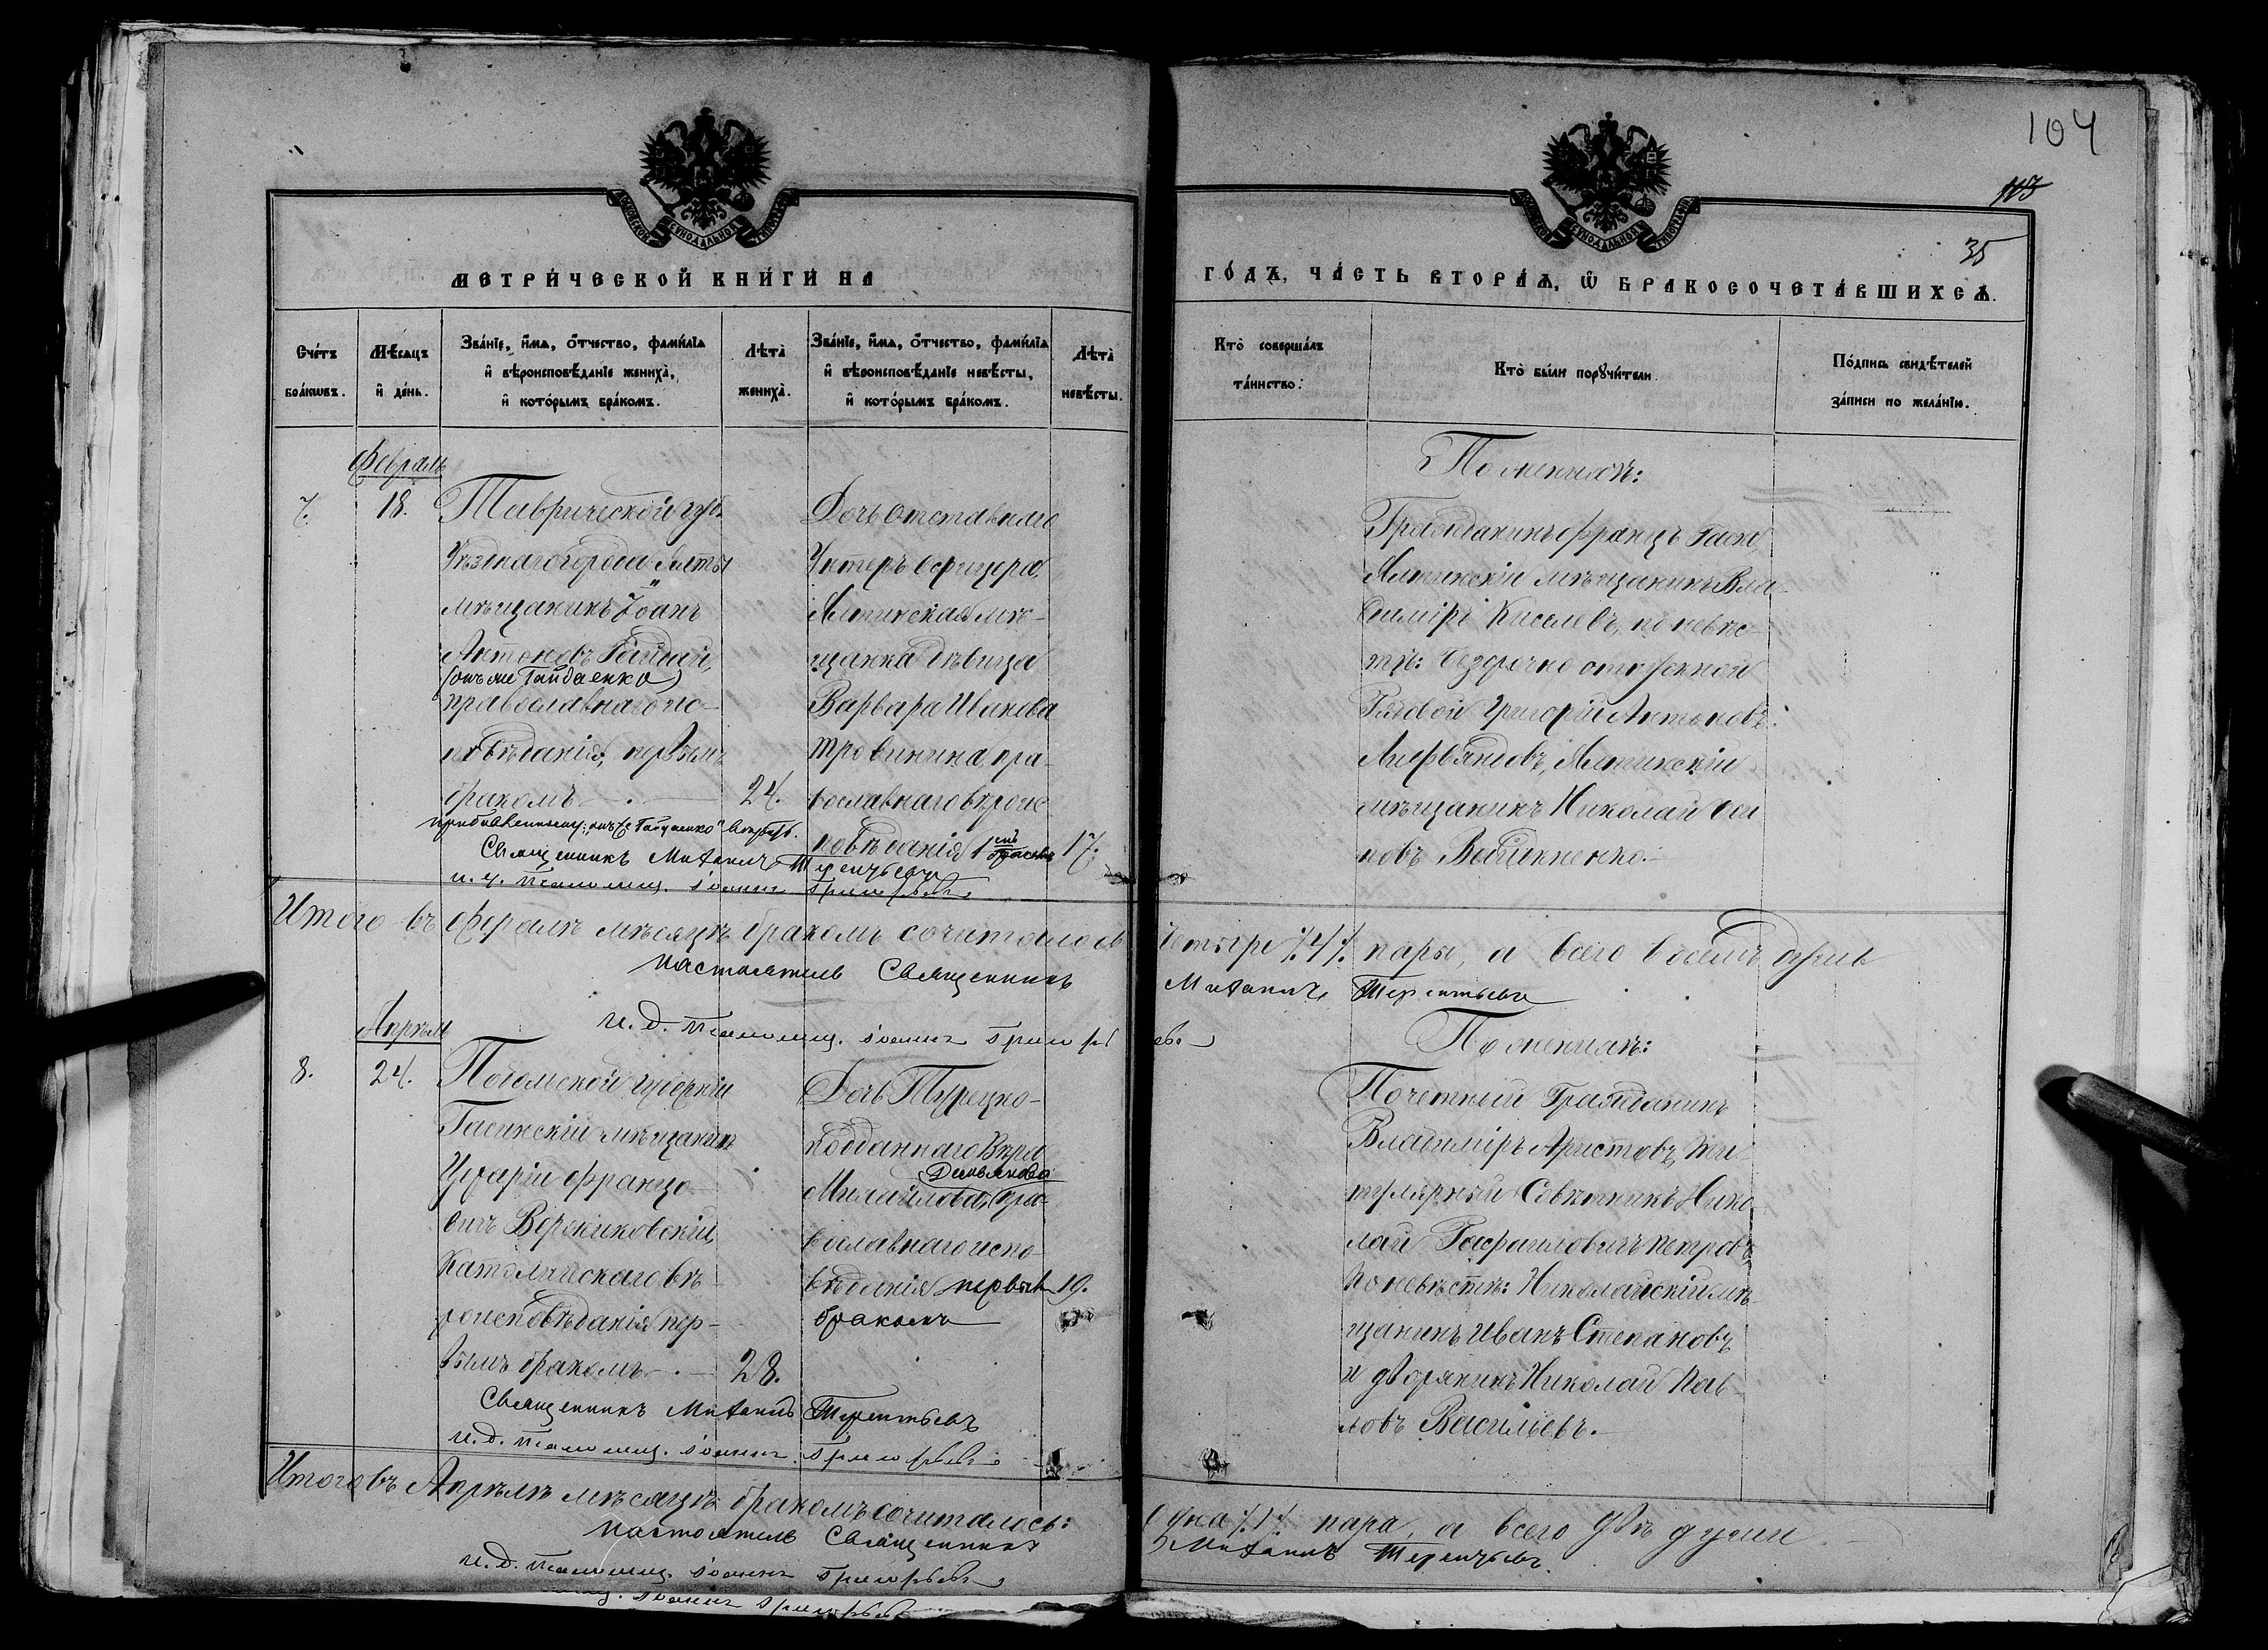 104
103
35
МОСКОВСКОЙ СѴНОДАЛЬНОЙ ТИПОГРАФІИ
МОСКОВСКОЙ СѴНОДАЛЬНОЙ ТИПОГРАФІИ
МЕТРИ́ЧЕСКОЙ КНИ́ГИ НА
ГО́ДЪ, ЧА́СТЬ ВТОРА́Ѧ, Ѡ БРАКОСОЧЕТА́ВШИХСѦ.
Сче́тъ
бра́кѡвъ.
Мѣ́сѧцъ
и де́нь.
Зва́нїе, и́мѧ, о́тчество, фами́лїѧ
и вѣроисповѣ́данїе жениха̀,
и кото́рымъ бра́комъ.
Лѣта̀
жениха̀.
Зва́нїе, и́мѧ, о́тчество, фами́лїѧ
и вѣроисповѣ́данїе невѣ́сты,
и кото́рымъ бра́комъ.
Лѣта̀
невѣ́сты.
Кто̀ соверша́лъ
та́инство.
Кто̀ бы́ли порꙋчи́тели.
По́дпись свидѣ́телей
за́писи по жела́нїю.
Февраль
7.
18.
Таврической губ.
Уѣзднаго города Ялты
мѣщанинъ Іоанъ
Антоновъ Гайдай,
(онъ же Гайдаенко)
православнаго ис-
повѣданія, первымъ
бракомъ
24.
Дочь отставнаго
Унтеръ Офицера,
Ялтинская мѣ-
щанка дѣвица
Варвара Иванова
Тровинина, пра-
вославнаго вѣроис
повѣданія 1мъ бракомъ
17.
Священникъ Михаилъ Терентьевъ
и. д. псаломщ. Іоаннъ Григорьевъ
По женихѣ:
Гражданинъ Францъ
Ялтинскій мѣщанинъ Вла-
диміръ Киселевъ, по невѣс-
тѣ: безсрочно отпускной
Рядовой Григорій Антоновъ
Ялтинскій
мѣщанинъ Николай Оси
повъ
Итого въ Февралѣ мѣсяцѣ бракомъ сочиталось четыре /4/ пары, а всего восемь душъ
Настоятель Священникъ Михаилъ Терентьевъ
и. д. псаломщ. Іоаннъ Григорьевъ
Апрѣль
8.
24.
губерніи
мѣщанинъ
Францо-
вичъ Вержиковскій,
Католическаго вѣ-
роисповѣданія пер-
вымъ бракомъ
28.
Дочь Турецко-
подданнаго Вѣра
Михайлова, пра-
вославнаго испо-
вѣданія первымъ
бракомъ
19.
Священникъ Михаилъ Терентьевъ
и. д. псаломщ. Іоаннъ Григорьевъ
По женихѣ:
Почетный Гражданинъ
Владиміръ Аристовъ, Ти
тулярный Совѣтникъ Нико
лай Рафаиловичъ Петровъ,
По невѣстѣ: Николайскій мѣ-
щанинъ Иванъ Степановъ
и дворянинъ Николай Пав-
ловъ Васильевъ.
Итого въ Апрѣлѣ мѣсяцѣ бракомъ сочиталось: Одна /1/ пара, а всего двѣ души
Настоятель Священникъ Михаилъ Терентьевъ
и. д. псаломщ. Іоаннъ Григорьевъ